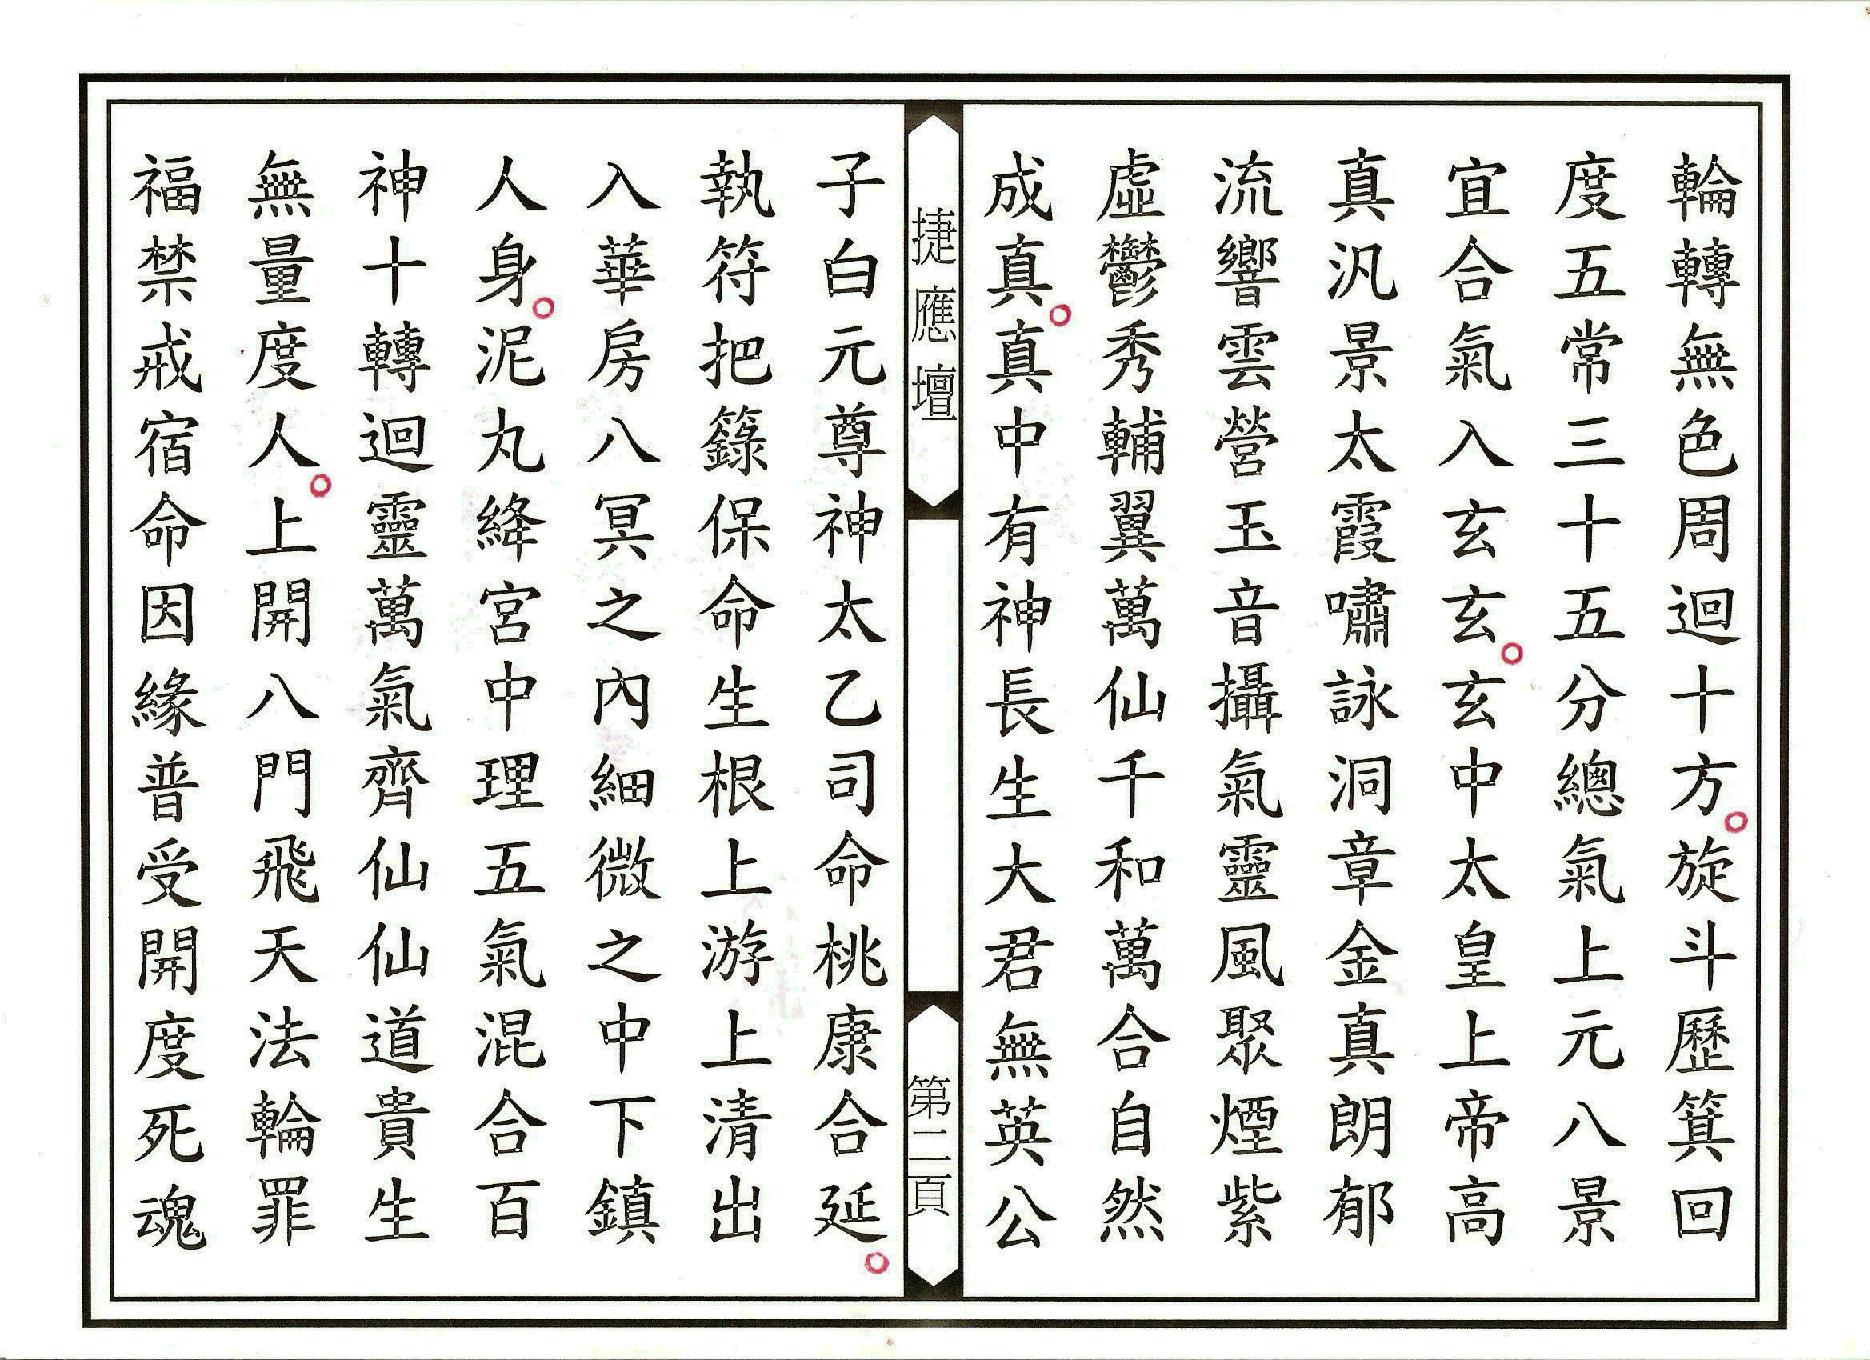 輪轉無色周迴十方。旋斗歷箕回
度五常三十五分總氣上元八景
宜合氣入玄玄。玄中太皇上帝高
真汎景太霞嘯詠洞章金真朗郁
流響雲營玉音攝氣靈風聚煙紫
虛鬱秀輔翼萬仙千和萬合自然
成真。真中有神長生大君無英公
捷應壇
第二頁
子白元尊神太乙司命桃康合延。
執符把籙保命生根上游上清出
入華房八冥之內細微之中下鎮
人身。泥丸絳宮中理五氣混合百
神十轉迴靈萬氣齊仙仙道貴生
無量度人。上開八門飛天法輪罪
福禁戒宿命因緣普受開度死魂